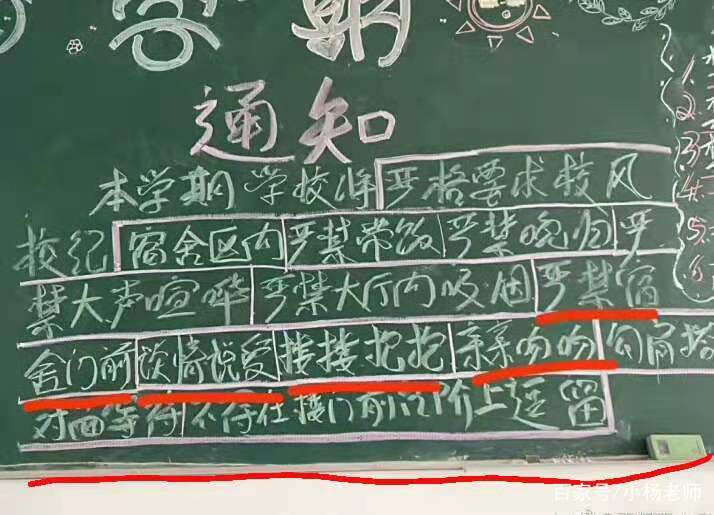 通知
本学期学校将严格要求校风
校纪宿舍区内严禁带饭严禁晚归严
禁大声喧哗严禁大厅内吸烟严禁宿
舍门前谈情说爱搂搂抱抱亲亲吻吻勾肩搭
对面等待不得在楼门前台阶上逗留
百家号/小杨老师